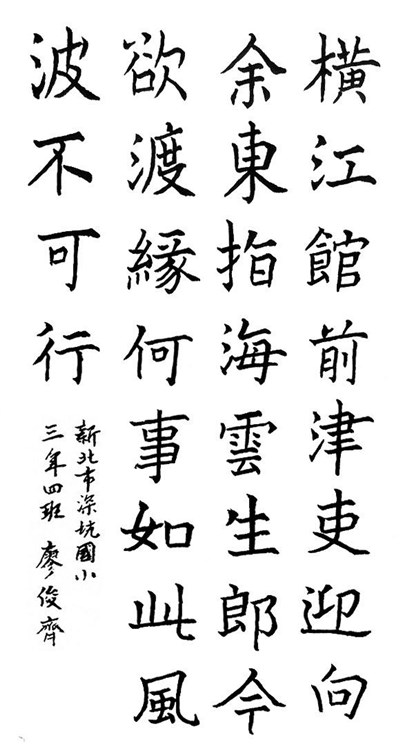 橫江館前津吏迎向
余東指海雲生郎今
欲渡緣何事如此風
波不可行
新北市深坑國小
三年四班 廖俊齊